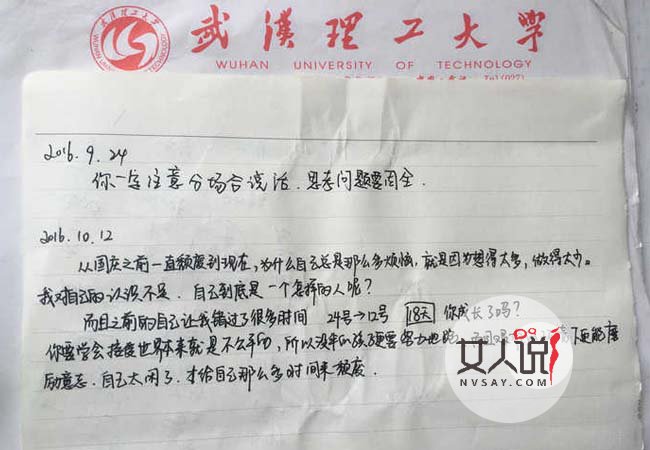 武汉理工大学
WUHAN UNIVERSITY OF TECHNOLOGY
Tel(027)
2016.9.24
你一定注意分场合说话.思考问题要周全.
2016.10.12
从国庆之前一直颓废到现在,为什么自己总是那么多烦恼,就是因为想得太多,做得太少。
我对自己的认识不足.自己到底是一个怎样的人呢?
而且之前的自己让我错过了很多时间 24号→12号 18天 你成长了吗?
你要学会接受世界本来就是不公平的,所以没伞的孩子更要努力地跑 下更能磨
励意志.自己太闲了.才给自己那么多时间来颓废.
女人说
NVSAY.COM